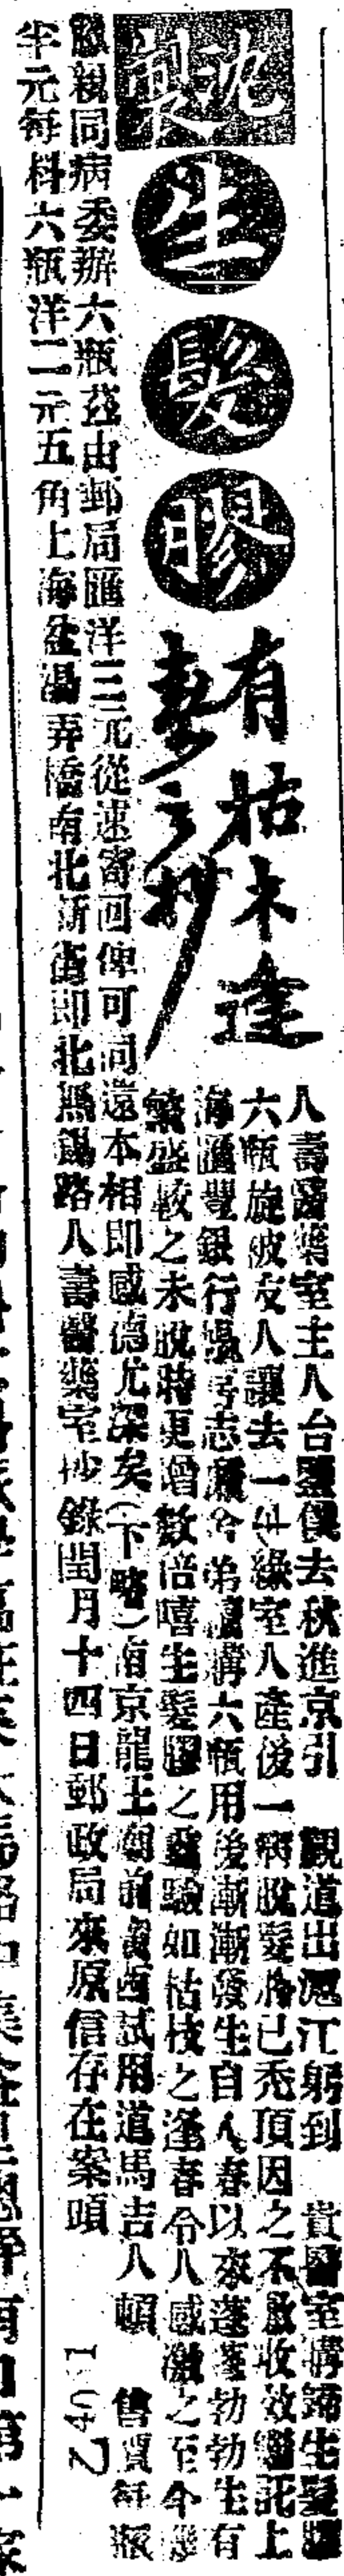 沈製
生
髮
膠
有枯木逢
春之妙
人壽醫藥室主人台鑒僕去秋進京引　觀道出滬江躬到　貴醫室購歸生髮膠
六瓶旋被友人讓去一半緣室人產後一病脫髮將已禿頂因之不敷收效囑託上
海匯豐銀行 志 舍弟續購六瓶用後漸漸發生自人春以來蓬蓬勃勃生有
繁盛較之未脫時更增數倍嘻生髮膠之靈驗如枯枝之逢春令人感激之至今
敝親同病委辦六瓶茲由郵局匯洋三元從速寄回俾可同還本相即感德尤深矣(下略)南京龍王廟前 試用道馬吉人頓　售價每瓶
半元每料六瓶洋二元五角上海盆湯弄橋南北新街即北無錫路人壽醫藥室抄錄閏月十四日郵政局來原信存在案頭